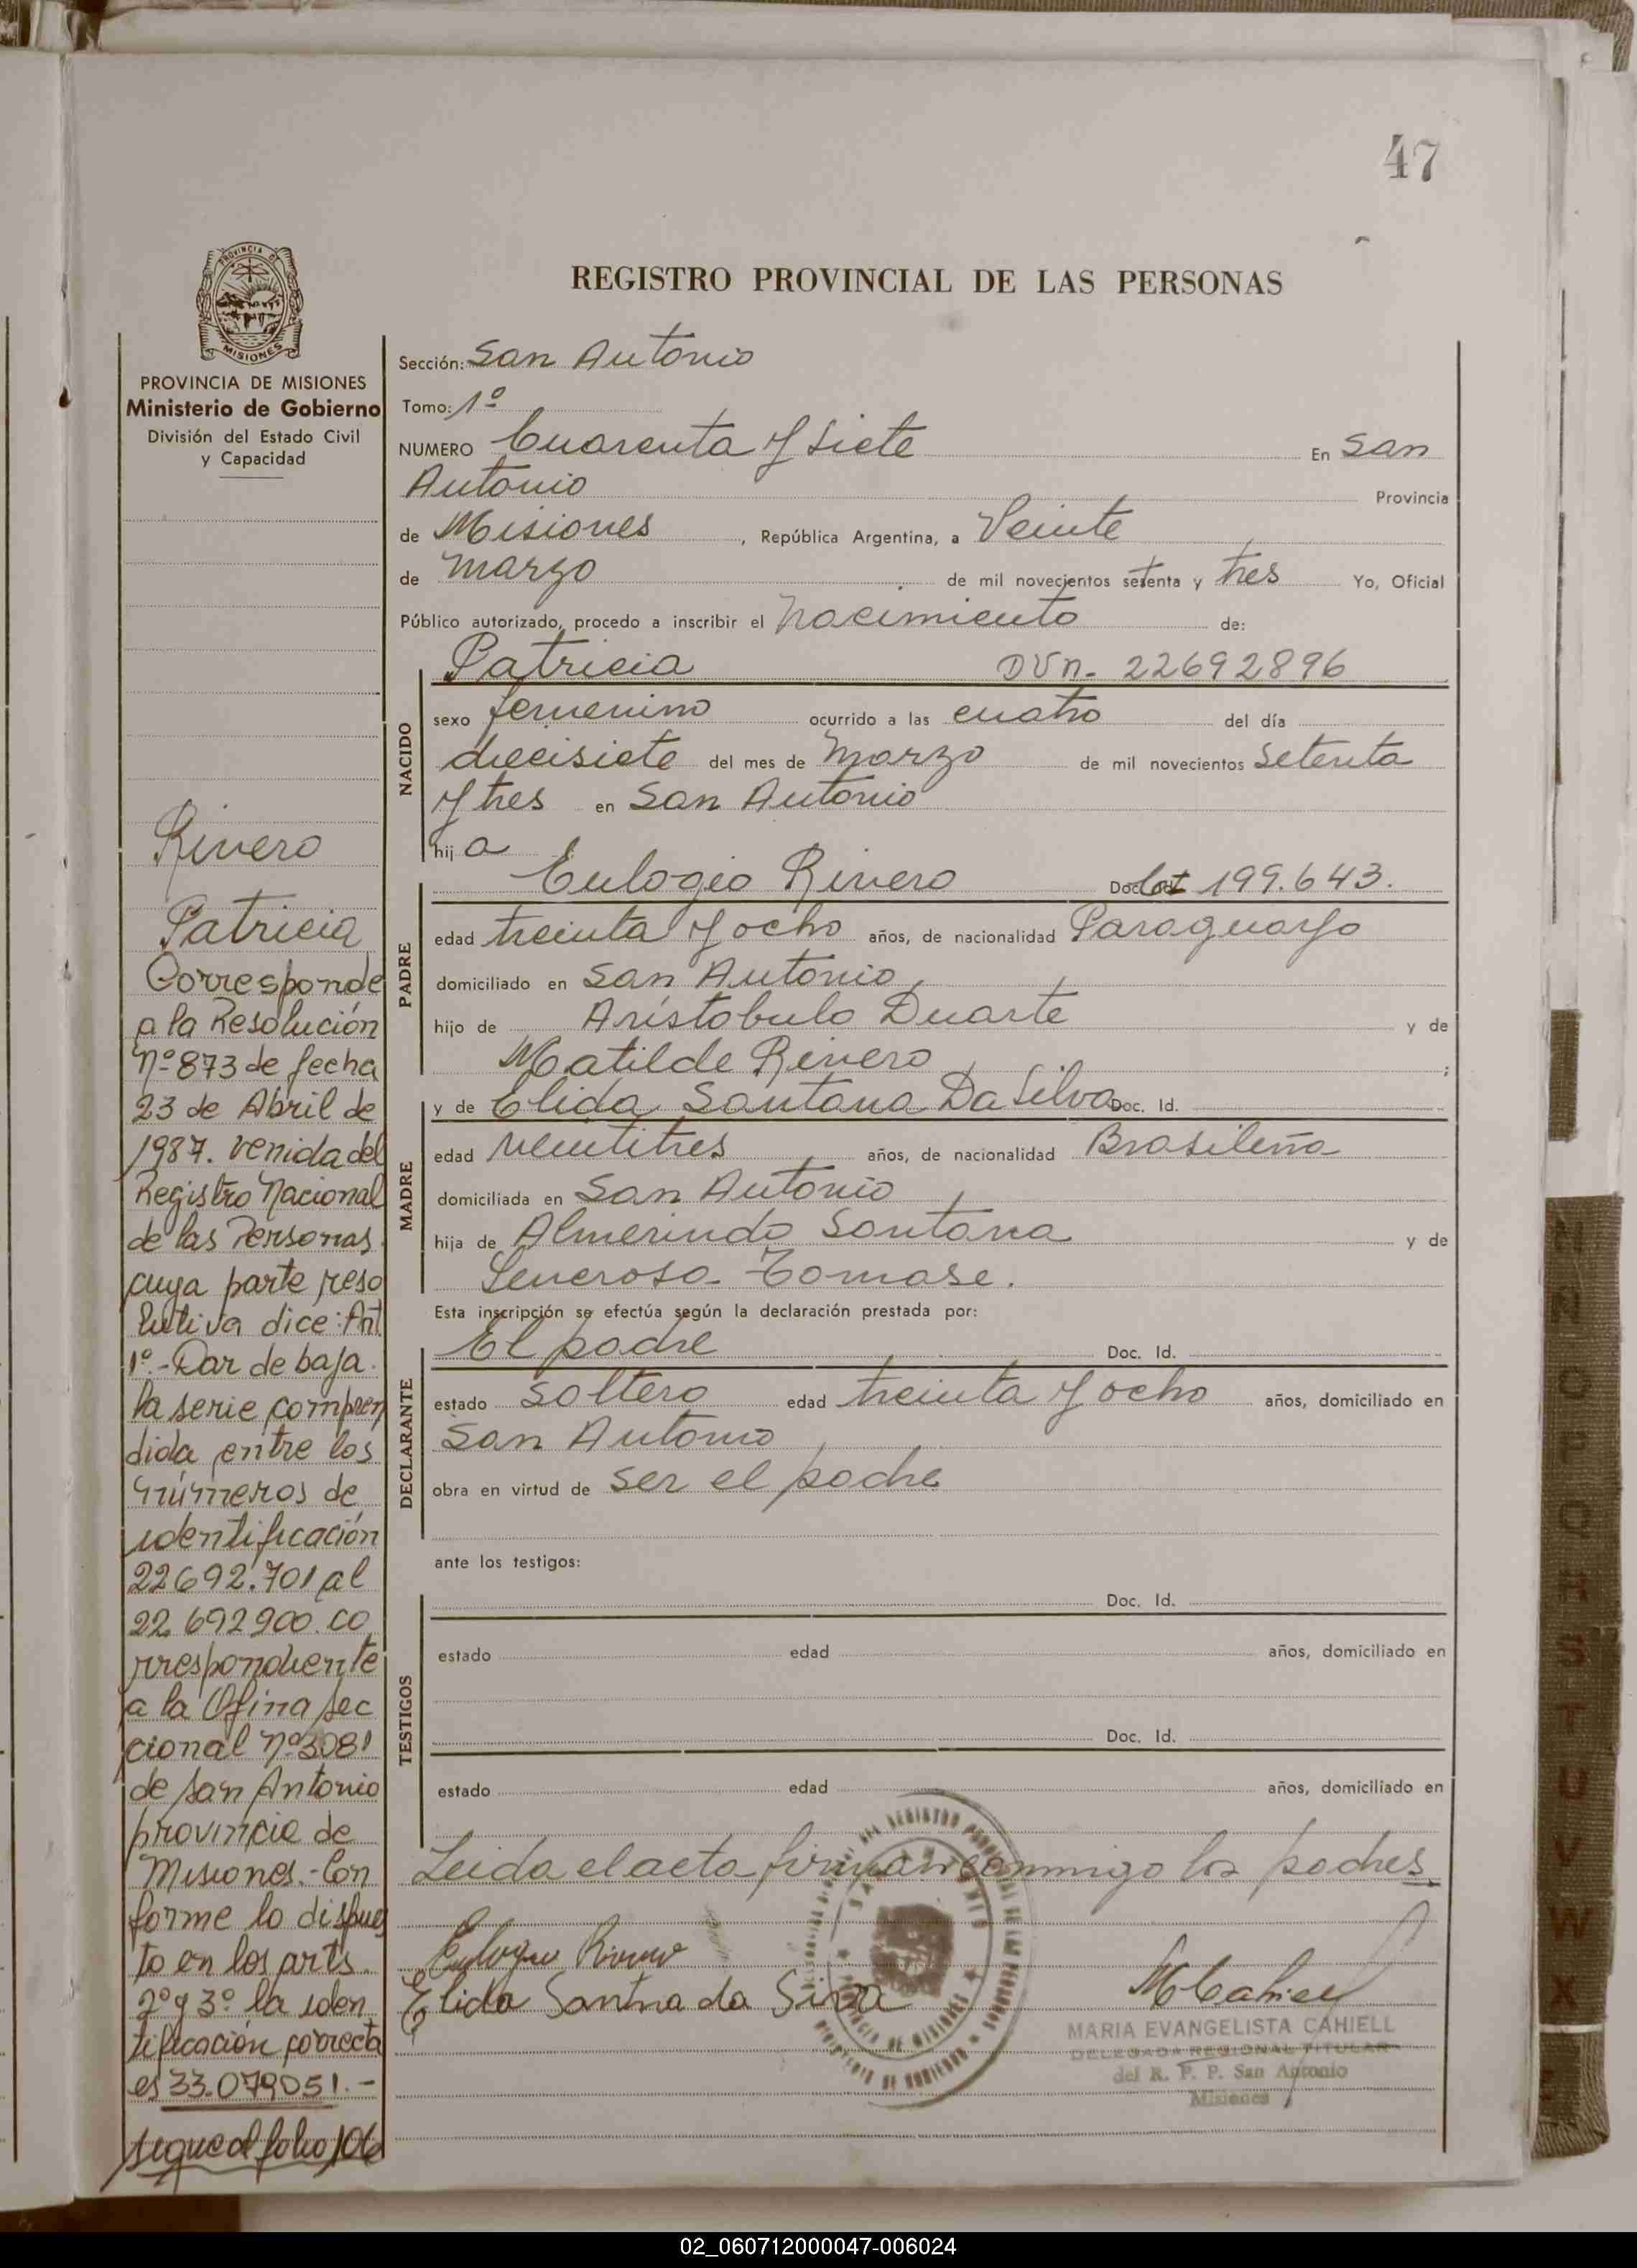 47
REGISTRO PROVINCIAL DE LAS PERSONAS
PROVINCIA DE
MISIONES
PROVINCIA DE MISIONES
Ministerio de Gobierno
División del Estado Civil
y Capacidad
Rivero
Patricia
Corresponde
a la Resolución
nº 873 de fecha
23 de Abril de
1987. venida del
Registro Nacional
de las Personas.
cuya parte reso
lutiva dice: Art
1º.- Dar de baja.
la serie compren
dida entre los
números de
identificación
22692.701 al
22.692900. co
rrespondiente
a la Ofina sec
cional nº 3081
de San Antonio
provincia de
Misiones.- Con
forme lo dispues
to en los arts.
2º y 3º la iden
tificación correcta
es 33.079051.-
sigue al folio 106
Sección: San Antonio
Tomo: 1º
NUMERO Cuarenta y siete En San
Antonio Provincia
de Misiones, República Argentina, a Veinte
de Marzo de mil novecientos setenta y tres Yo, Oficial
Público autorizado, procedo a inscribir el Nacimiento de:
Patricia DUn. 22692896
NACIDO
sexo femenino ocurrido a las cuatro del día
diecisiete del mes de Marzo de mil novecientos setenta
y tres en San Antonio
hij a
PADRE
Eulogio Rivero Doc. 199.643.
edad treinta y ocho años, de nacionalidad Paraguayo
domiciliado en San Antonio,
hijo de Arístobulo Duarte y de
Matilde Rivero ;
MADRE
y de Elida Santana Da Silva Doc. Id.
edad veintitres años, de nacionalidad Brasileña
domiciliada en San Antonio,
hija de Almerindo Santana y de
Tomase.
Esta inscripción se efectúa según la declaración prestada por:
DECLARANTE
El padre Doc. Id.
estado soltero edad treinta y ocho años, domiciliado en
San Antonio,
obra en virtud de ser el padre
ante los testigos:
TESTIGOS
Doc. Id.
estado edad años, domiciliado en
Doc. Id.
estado edad años, domiciliado en
Leida el acta firman conmigo los padres.
Eulogio Rivero
Elida Santna da Siva
MCahiell
MARIA EVANGELISTA CAHIELL
DELEGADA REGIONAL TITULAR
del R. P. P. San Antonio
Misiones
N
Ñ
O
P
Q
R
S
T
U
V
W
X
02_060712000047-006024